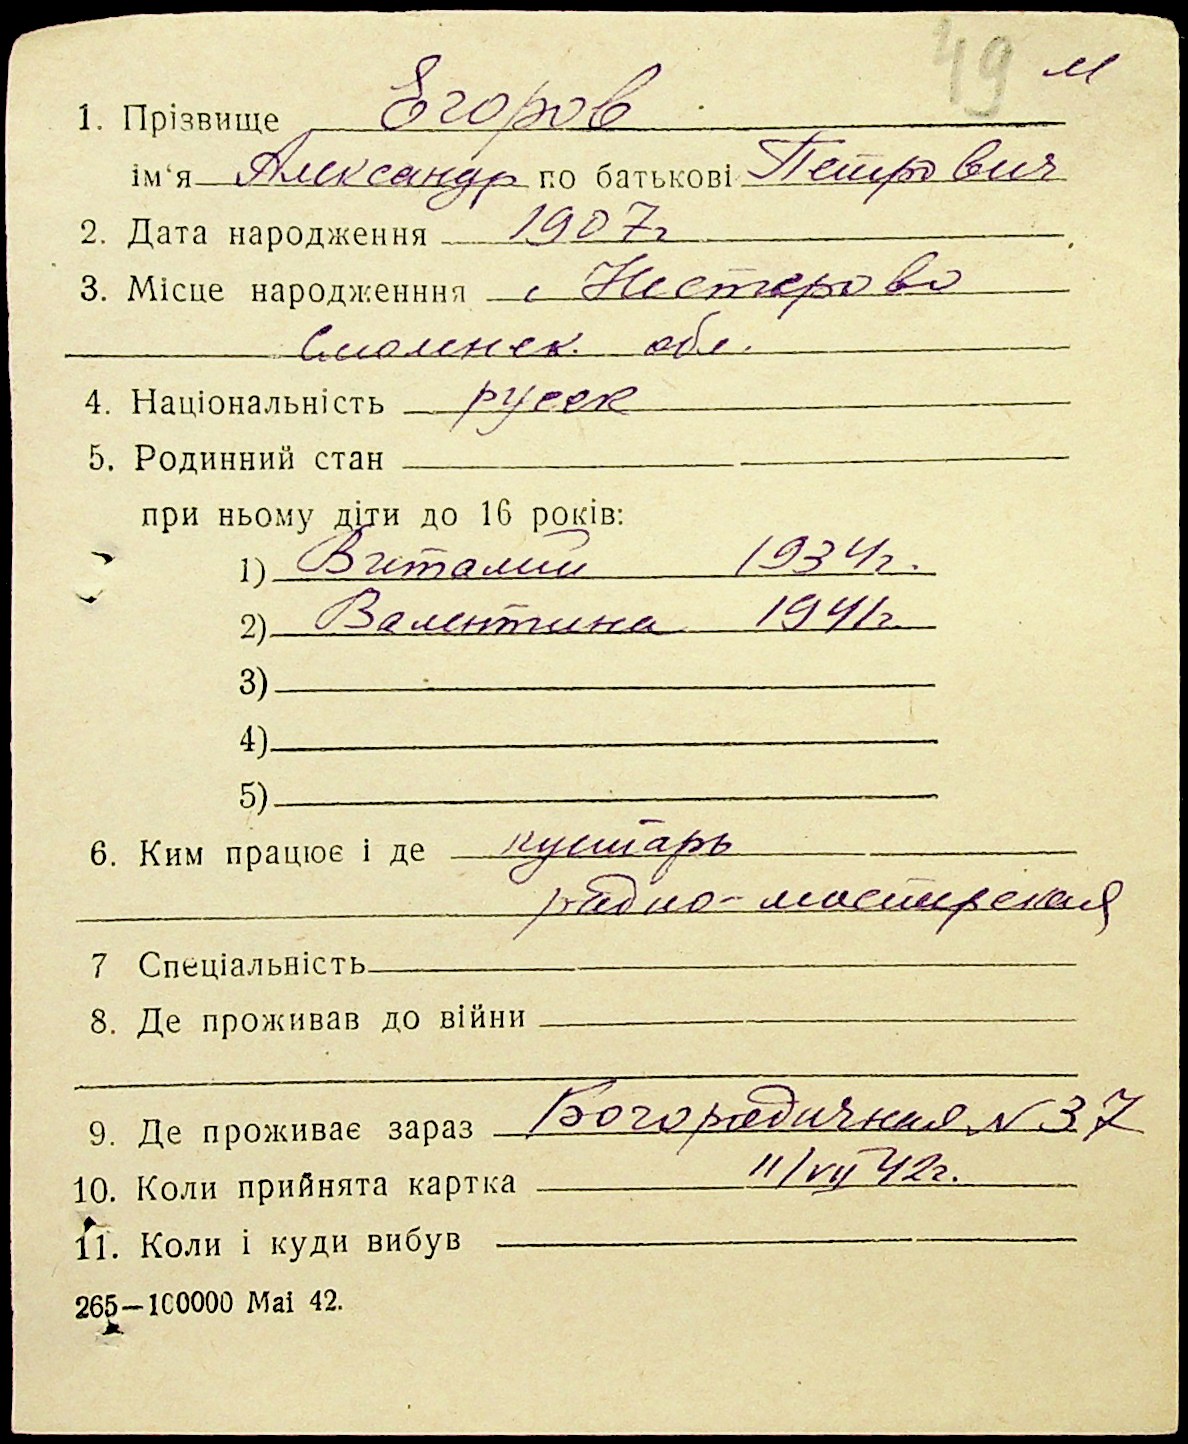 49 м
1. Прізвище Егоров
ім‘я Александр по батькові Петрович
2. Дата народження 1907г
3. Місце народженння с Нестерово
Смоленск. обл.
4. Національність русск
5. Родинний стан
при ньому діти до 16 років:
1) Виталий 1934г.
2) Валентина 1941г.
3)
4)
5)
6. Ким працює і де кустарь
радио-мастерская
7 Спеціальність
8. Де проживав до війни
9. Де проживає зараз Богородичная N 37
10. Коли прийнята картка 11/VII 42г.
11. Коли і куди вибув
265—100000 Маі 42.